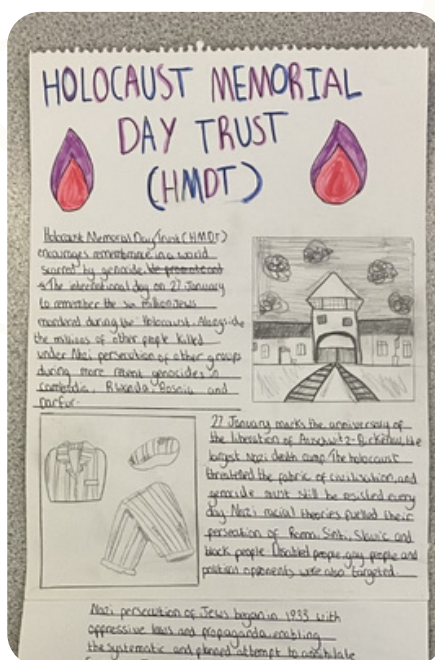 HOLOCAUST MEMORIAL
DAY TRUST
(HMDT)
Holocaust Memorial Day Trust (HMDT)
encourages remembrance in a world
scarred by genocide. We promote and
The international day on 27 January
to remember the six million Jews
murdered during the Holocaust. Alongside
the millions of other people killed
under Nazi persecution of other groups
during more recent genocides in
Cambodia, Rwanda Bosnia and
Darfur.
27 January marks the anniversary of
the liberation of Auschwitz-Birkenau, the
largest Nazi death camp. The holocaust
threatened the fabric of civilisation, and
genocide must still be resisted every
day. Nazi racial theories fuelled their
persecution of Roma, Sinti, Slavic and
black people. Disabled people, gay people and
political opponents were also targeted.
Nazi persecution of Jews began in 1933 with
oppressive laws and propaganda, enabling
the systematic and planned attempt to annihilate